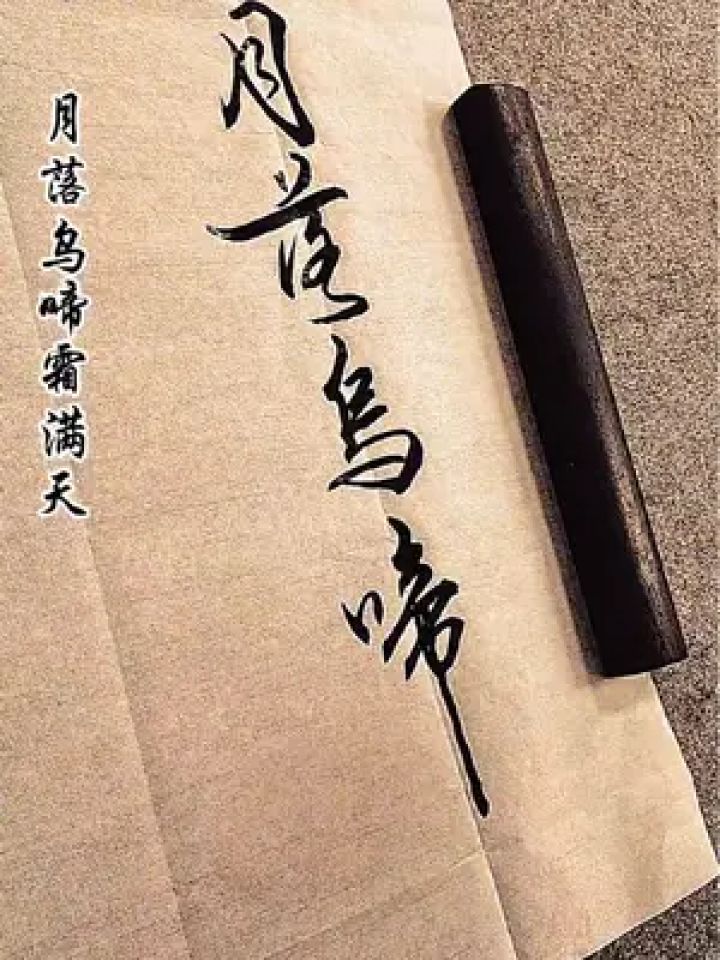 月落乌啼
月落乌啼霜满天